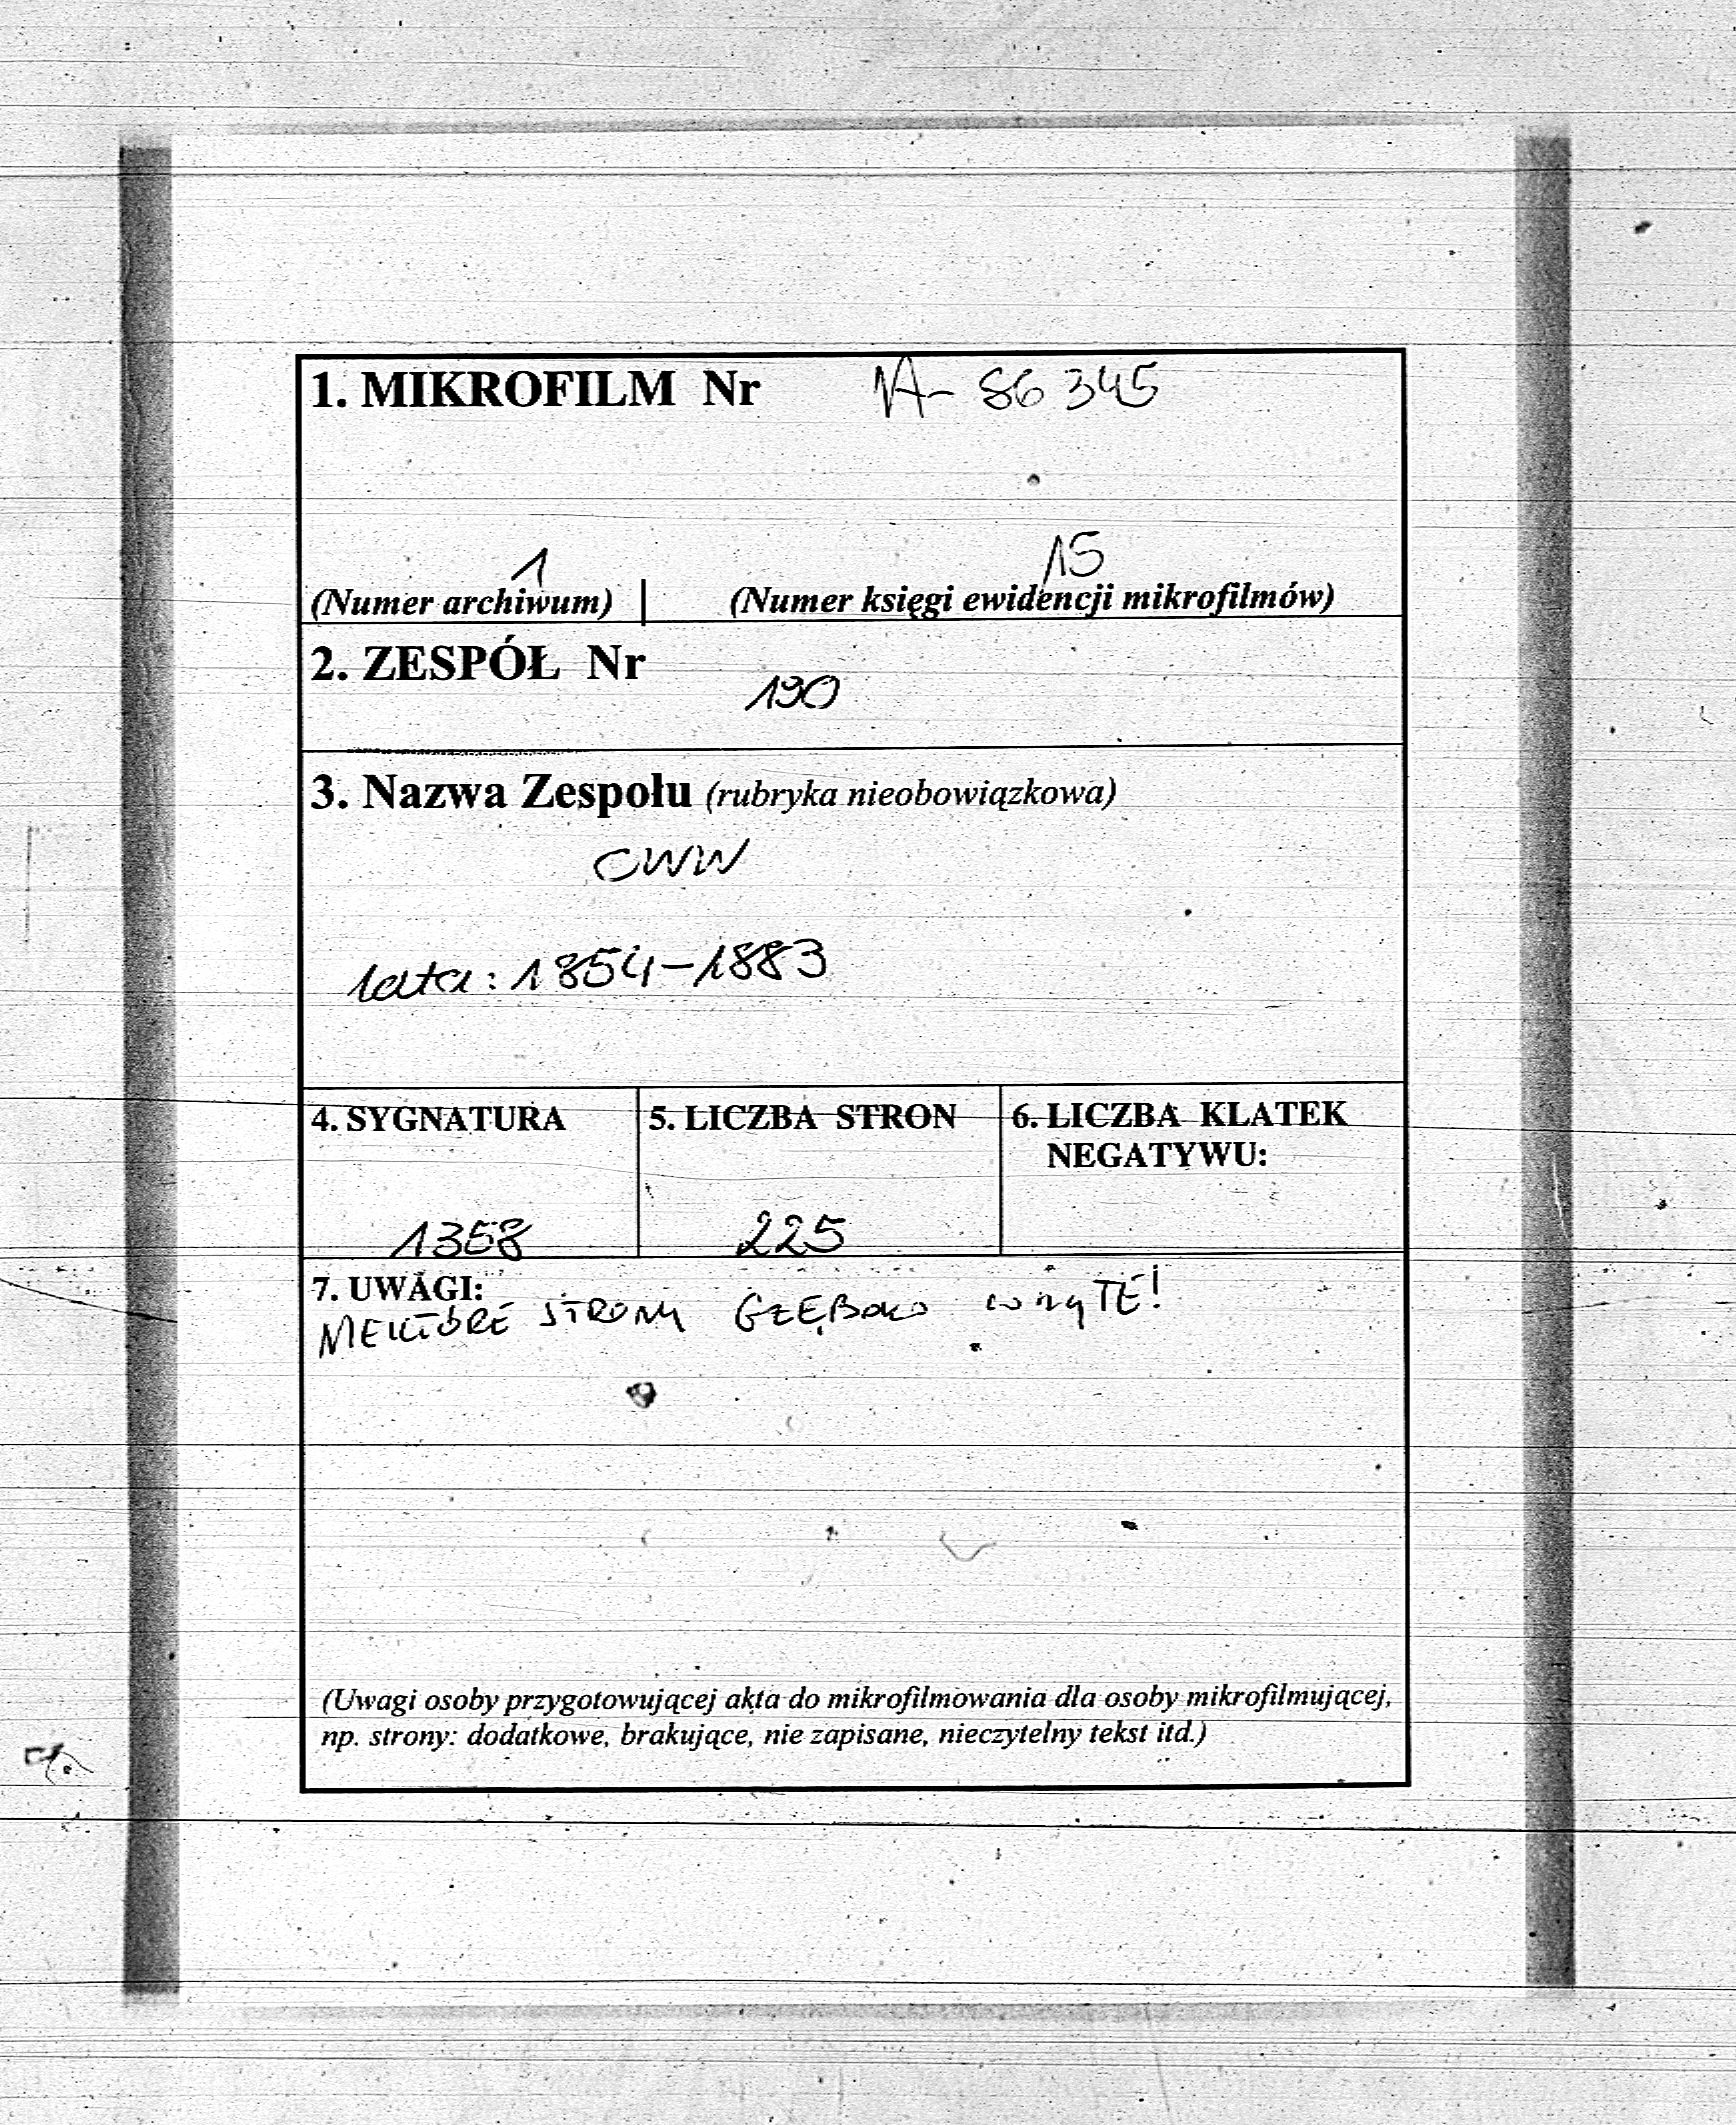 1. MIKROFILM Nr A-86345
1 15
(Numer archiwum) | (Numer księgi ewidencji mikrofilmów)
2. ZESPÓŁ Nr
190
3. Nazwa Zespołu (rubryka nieobowiązkowa)
CWW
lata: 1854-1883
4. SYGNATURA 5. LICZBA STRON 6. LICZBA KLATEK
NEGATYWU:
1358 225
7. UWAGI:
NIEKTÓRE STRONY GŁĘBOKO WSZYTE!
(Uwagi osoby przygotowującej akta do mikrofilmowania dla osoby mikrofilmującej,
np. strony: dodatkowe, brakujące, nie zapisane, nieczytelny tekst itd.)